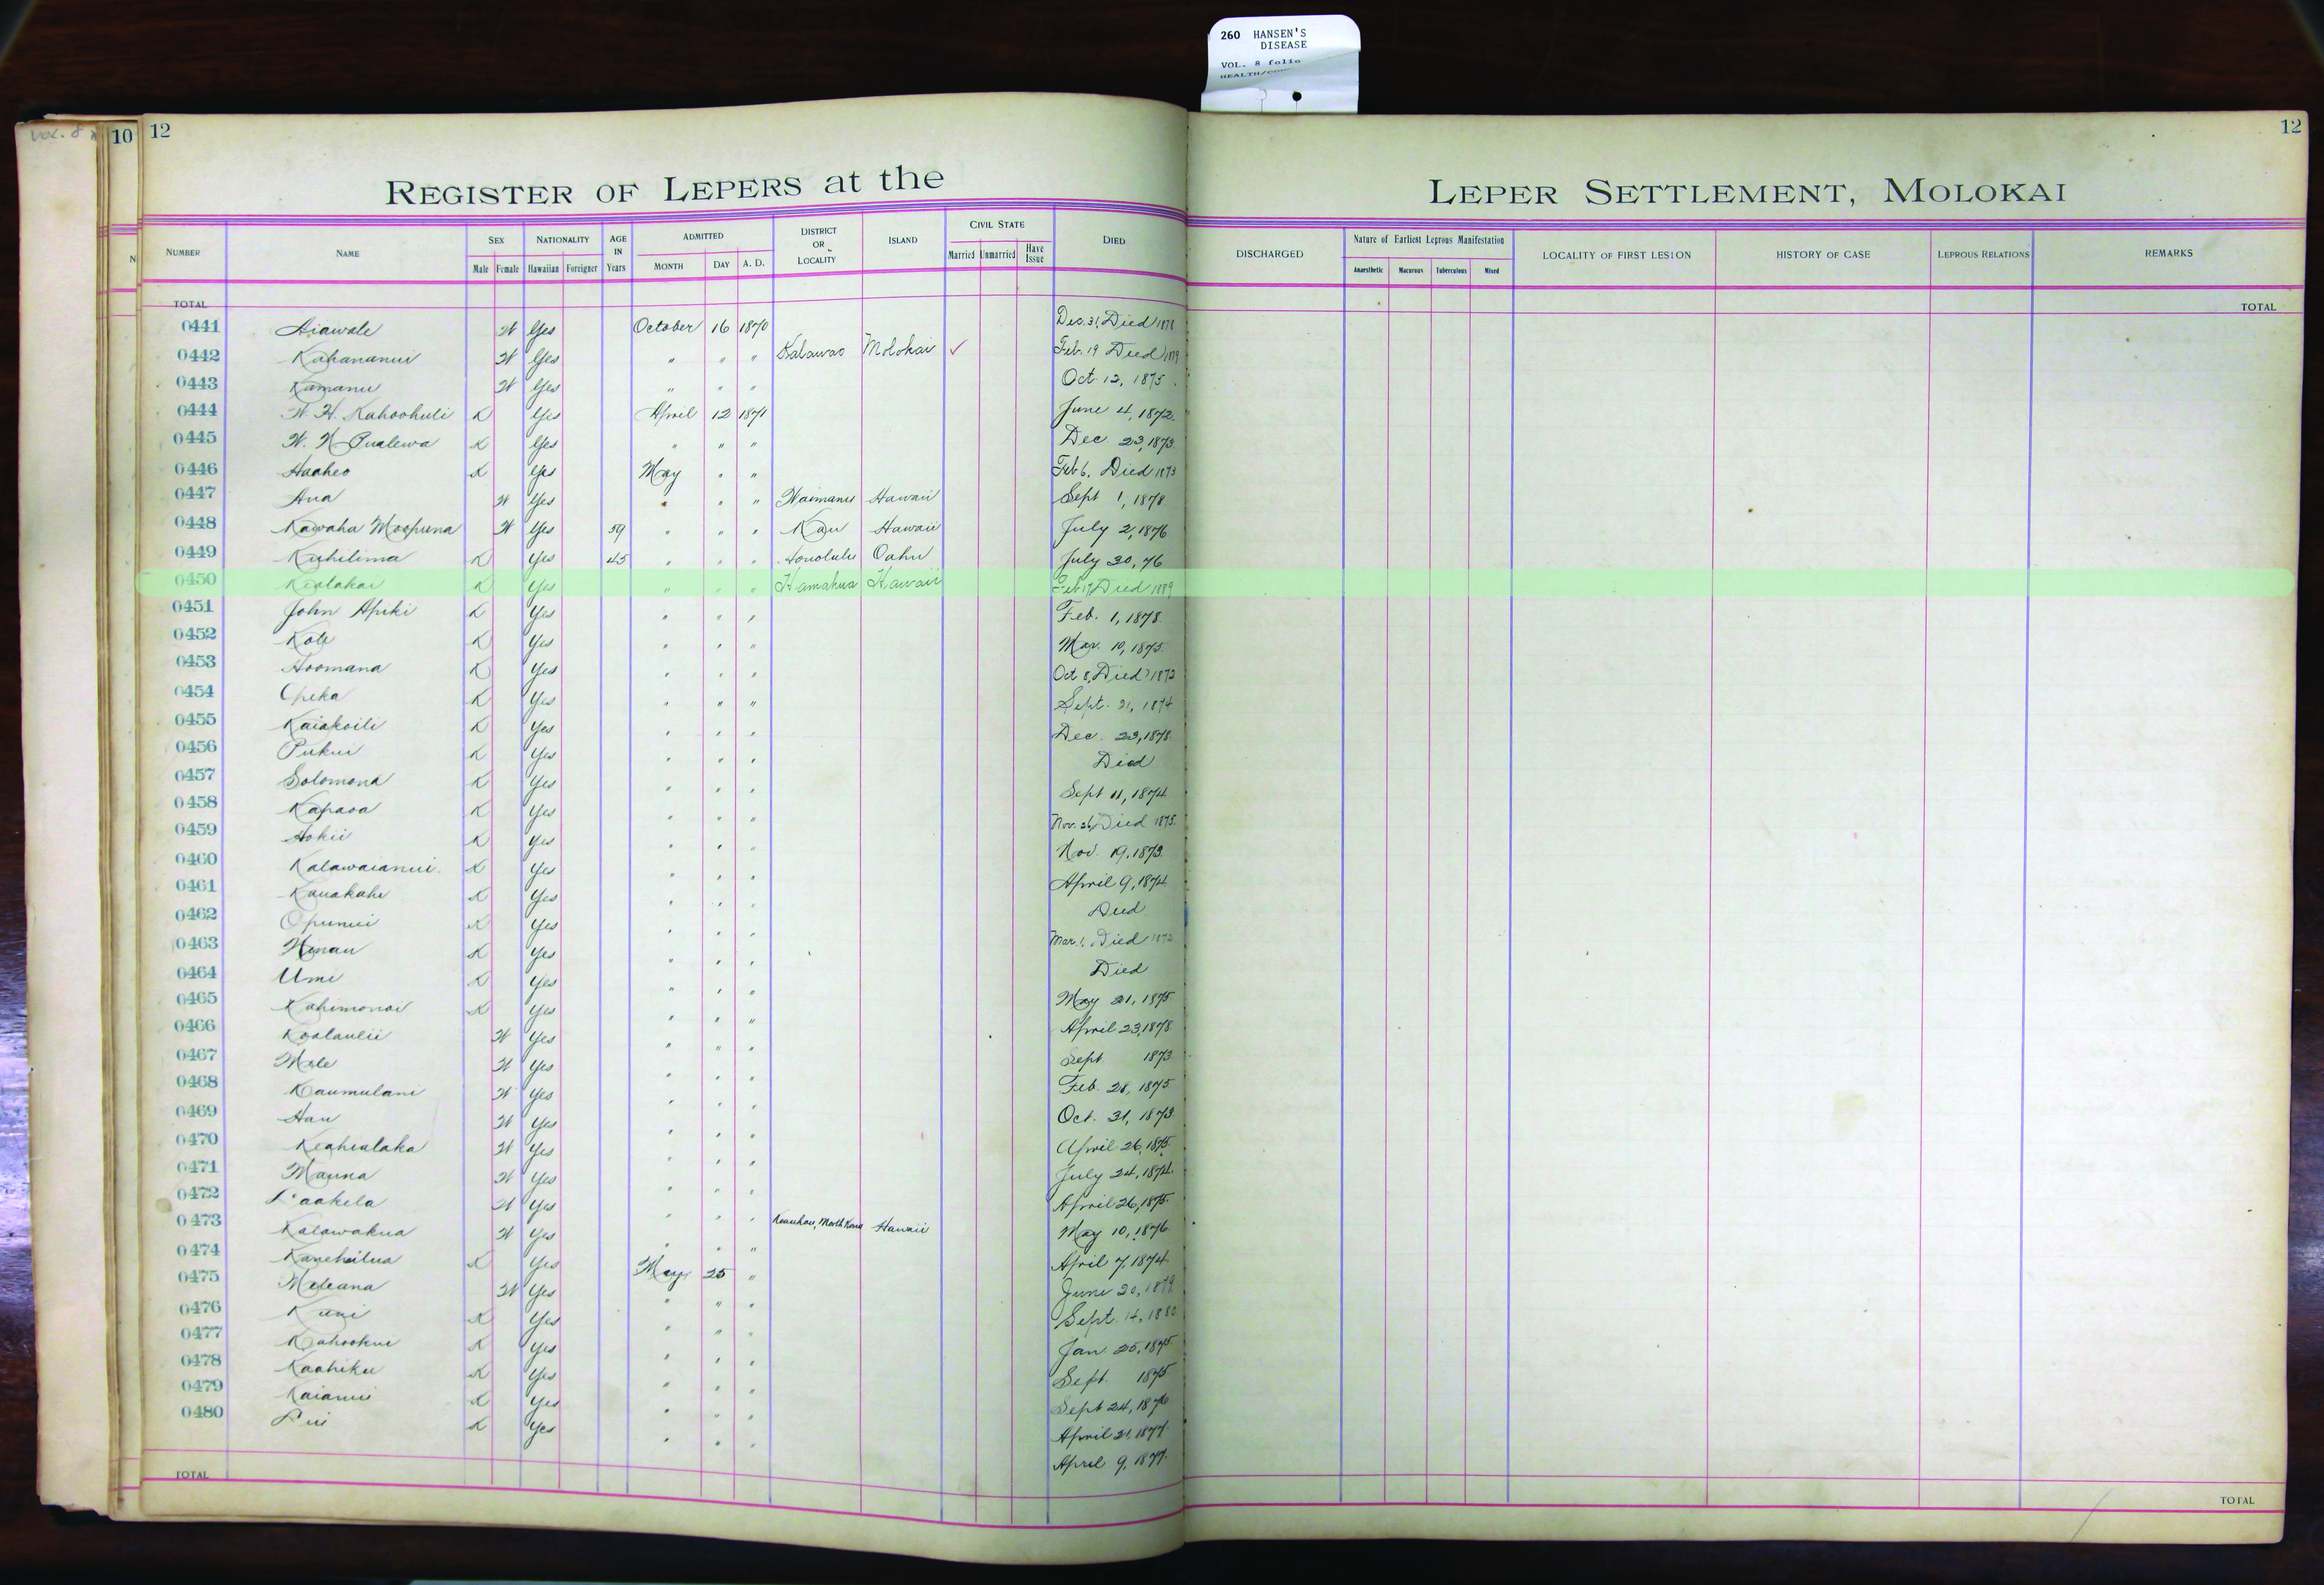 260 HANSEN'S
DISEASE
VOL. 8 folio
VOL. 8
10 12
12
REGISTER OF LEPERS at the LEPER SETTLEMENT, MOLOKAI
NUMBER NAME SEX Male Female NATIONALITY Hawaiian Foreigner AGE IN Years ADMITTED MONTH DAY A. D. DISTRICT OR LOCALITY ISLAND CIVIL STATE Married Unmarried Have Issue DIED DISCHARGED Nature of Earliest Leprous Manifestation Anaesthetic Macurous Tuberculous Mixed LOCALITY OF FIRST LESION HISTORY OF CASE LEPROUS RELATIONS REMARKS
TOTAL TOTAL
0441 Aiawale W Yes October 16 1870 Dec. 31, Died 1878
0442 Kahananui W Yes " " " Kalawao Molokai ✓ Feb. 19 Died 1879
0443 Kamanu W Yes " " " Oct. 12, 1875
0444 W. H. Kahoohuli K Yes April 12 1871 June 4, 1872.
0445 W. N. Pualewa K Yes " " " Dec. 23, 1873.
0446 Haaheo K Yes May " " Feb 6, Died 1873
0447 Ana W Yes " " " Waimanu Hawaii Sept 1, 1878
0448 Kawaha Moopuna W Yes 59 " " " Kau Hawaii July 2, 1876
0449 Kuhilima K Yes 45 " " " Honolulu Oahu July 30, 76
0450 Kealakai K Yes " " " Hamakua Hawaii Feb 17, Died 1889
0451 John Apiki K Yes " " " Feb. 1, 1878.
0452 Kole K Yes " " " Mar. 10, 1875.
0453 Hoomana K Yes " " " Oct 8, Died 1873
0454 Opeka K Yes " " " Sept. 21, 1874
0455 Kaiakoili K Yes " " " Dec. 23, 1878.
0456 Pukui K Yes " " " Died
0457 Solomona K Yes " " " Sept 11, 1874.
0458 Kapaoa K Yes " " " Nov. 26, Died 1875.
0459 Hokii K Yes " " " Nov. 19, 1873.
0460 Kalawaianui K Yes " " " April 9, 1874.
0461 Kauakahi K Yes " " " Died
0462 Opunui K Yes " " " Mar. 1, Died 1872
0463 Hinau K Yes " " " Died
0464 Umi K Yes " " " May 21, 1875
0465 Kahimonoi K Yes " " " April 23, 1878.
0466 Koolaulii W Yes " " " Sept 1873
0467 Mele W Yes " " " Feb. 28, 1875.
0468 Kaumulani W Yes " " " Oct. 31, 1873
0469 Hau W Yes " " " April 26, 1875.
0470 Keahialaka W Yes " " " July 24, 1874.
0471 Mauna W Yes " " " April 26, 1875.
0472 Laakela W Yes " " " Keauhou, North Kona Hawaii May 10, 1876
0473 Kalawakua W Yes " " " April 7, 1874
0474 Kanehailua K Yes May 25 " June 20, 1879
0475 Meleana W Yes " " " Sept. 14, 1880
0476 Kuni K Yes " " " Jan 25, 1875.
0477 Kahookui K Yes " " " Sept. 1875
0478 Kaahiku K Yes " " " Sept 24, 1876
0479 Kaianui K Yes " " " April 21, 1877.
0480 Lui K Yes " " " April 9, 1877.
TOTAL TOTAL